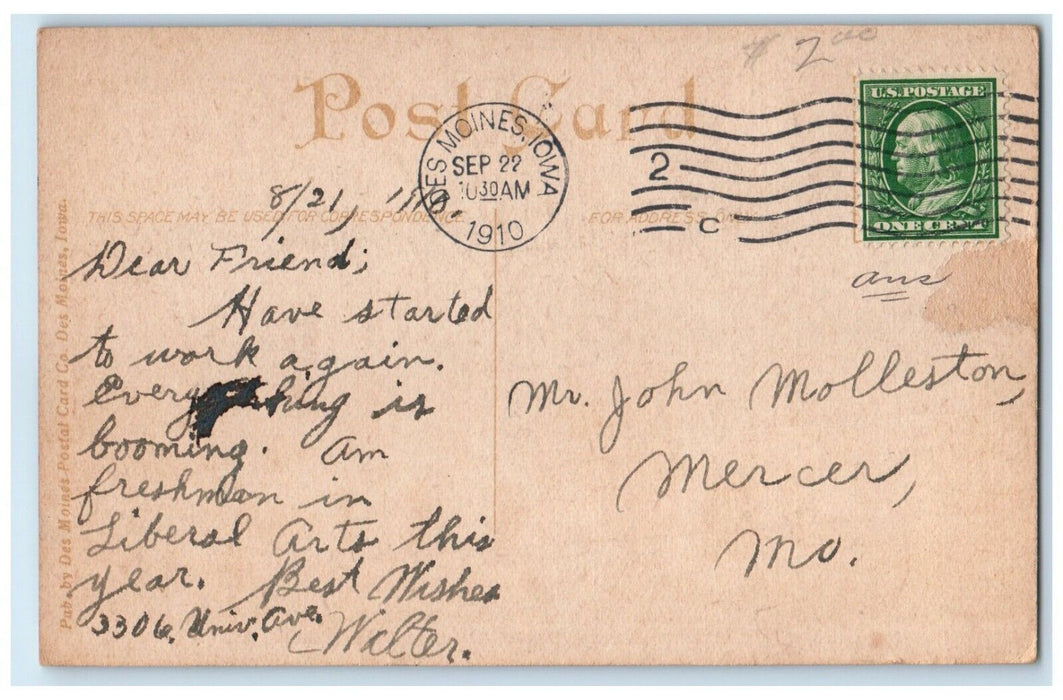 $ 2.00
Post Card
U.S. POSTAGE
ONE CENT
DES MOINES, IOWA
SEP 22
10 30 AM
1910
2
C
THIS SPACE MAY BE USED FOR CORRESPONDENCE
FOR ADDRESS ONLY
Pub. by Des Moines Postal Card Co. Des Moines, Iowa.
8/21, 1910
Dear Friend;
Have started
to work again.
Everything is
booming. Am
freshman in
Liberal Arts this
year. Best Wishes
3306, Univ. Ave.
Walter.
ans
Mr. John Molleston,
Mercer,
Mo.